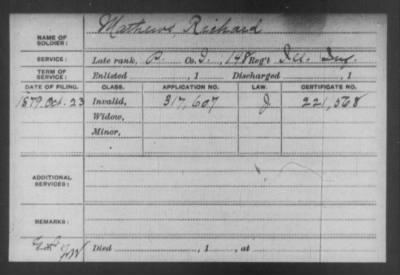 NAME OF SOLDIER: Mathews, Richard
SERVICE: Late rank, P. Co. I, 148 Reg't Ill. Inf.
TERM OF SERVICE: Enlisted , 1 Discharged , 1
DATE OF FILING. CLASS. APPLICATION NO. LAW. CERTIFICATE NO.
1879 Oct. 23 Invalid, 317,607 J. 221,568
Widow,
Minor,
ADDITIONAL SERVICES:
REMARKS:
Died , 1 , at